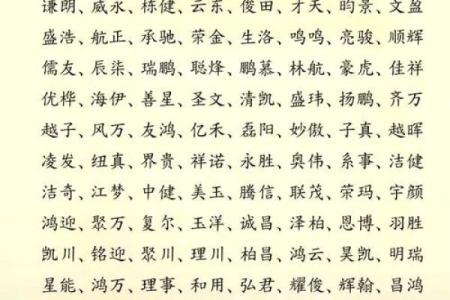 谦朗、威永、栋健、云东、俊田、才天、昀景、文盈
盛浩、航正、承驰、荣金、生洛、鸣鸣、亮骏、顺辉
儒友、辰柒、瑞鹏、聪烽、鹏慕、林航、豪虎、佳祥
优桦、海伊、善星、圣文、清凯、盛玮、扬鹏、齐万
越子、风万、友鸿、亿禾、磊阳、妙傲、子真、越晖
凌发、纽真、界贵、祥诺、永胜、奥伟、系事、洁健
洁奇、江梦、中健、美玉、腾信、联茂、荣玛、宇颜
鸿迎、聚万、复尔、玉洋、诚昌、泽柏、恩博、羽胜
凯川、铭迎、聚川、理川、柏昌、鸿云、昊凯、明瑞
星能、鸿万、理事、和用、弘君、耀俊、辉翰、昌鸿